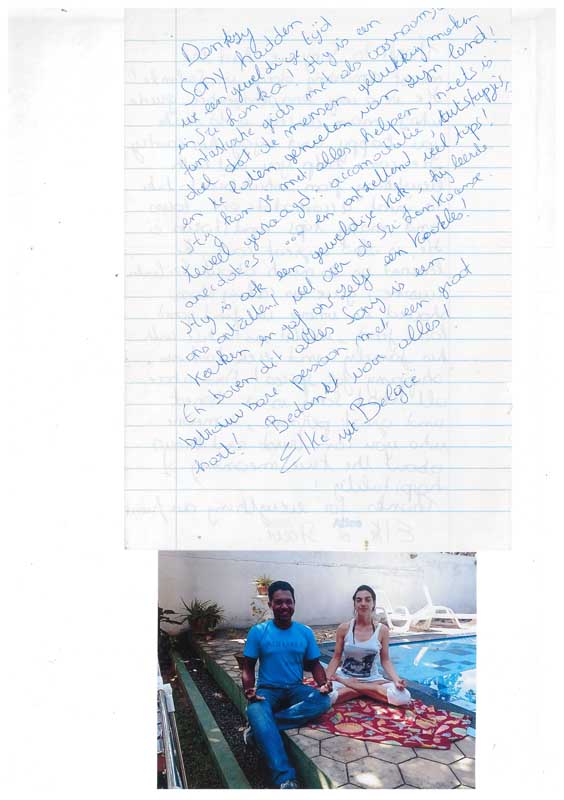 Dankzij
Sony hadden
we een geweldige tijd
in Sri Lanka! Hij is een
fantastische gids met als voornaamste
doel dat de mensen gelukkig maken
en te laten genieten van zijn land!
Hij kan je met alles helpen, niets is
teveel gevraagd: accomodatie, uitstapjes,
anecdotes, ... en ontzettend veel tips!
Hij is ook een geweldige kok, hij leerde
ons ontzettend veel over de Sri Lankaanse
keuken en gaf ons zelfs een kookles!
En boven dit alles Sony is een
betrouwbare persoon met een groot
hart! Bedankt voor alles!
Elke uit België
Atlas